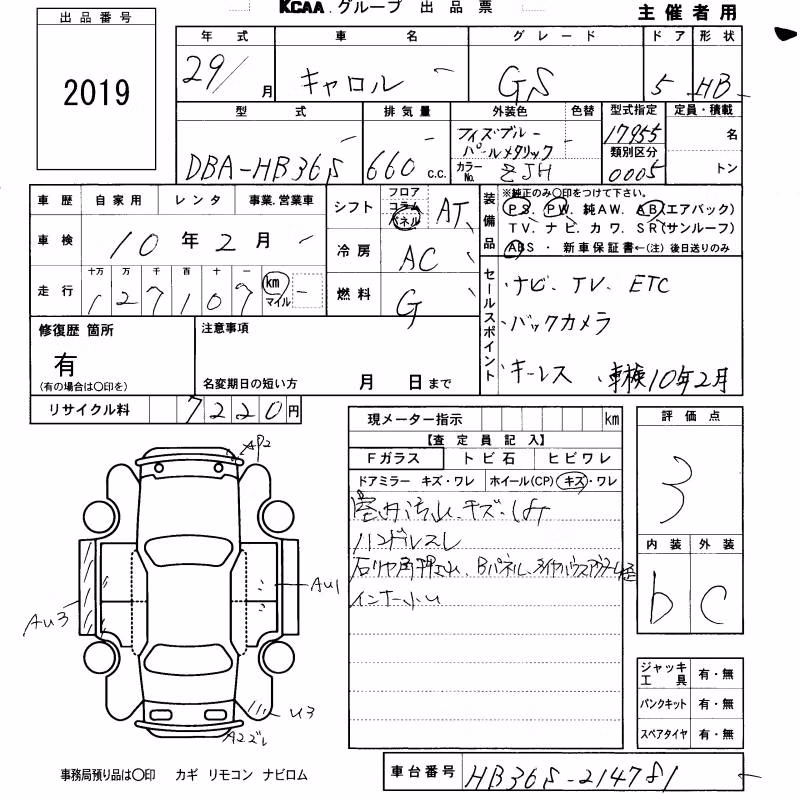 KCAA. グループ 出品票
主催者用
出品番号
2019
年式 車名 グレード ドア 形状
29/ 月 キャロル GS 5 HB
型式 排気量 外装色 色替 型式指定 定員・積載
DBA-HB36S 660 c.c. パールメタリック カラーNo. ZJH 17955 名
類別区分 0005 トン
車歴 自家用 レンタ 事業.営業車
車検 10年2月
走行 十万 万 千 百 十 一
127107 km マイル
シフト フロア コラム パネル AT
冷房 AC
燃料 G
装備品 ※純正のみ○印をつけて下さい。
PS. PW. 純AW. AB(エアバック)
TV. ナビ. カワ. SR(サンルーフ)
ABS ・ 新車保証書←(注) 後日送りのみ
セールスポイント
・ナビ、TV、ETC
・バックカメラ
・キーレス ・車検10年2月
修復歴 箇所
有
(有の場合は○印を)
注意事項
名変期日の短い方 月 日まで
リサイクル料 7220円
現メーター指示 km
【査定員記入】
Fガラス トビ石 ヒビワレ
ドアミラー キズ・ワレ ホイール(CP) キズ・ワレ
室内汚れ、キズ、
ハンドルスレ
Bパネル、
評価点
3
内装 外装
b C
AP2
Au1
Au3
U3
ジャッキ工具 有・無
パンクキット 有・無
スペアタイヤ 有・無
事務局預り品は○印 カギ リモコン ナビロム
車台番号 HB36S-214781